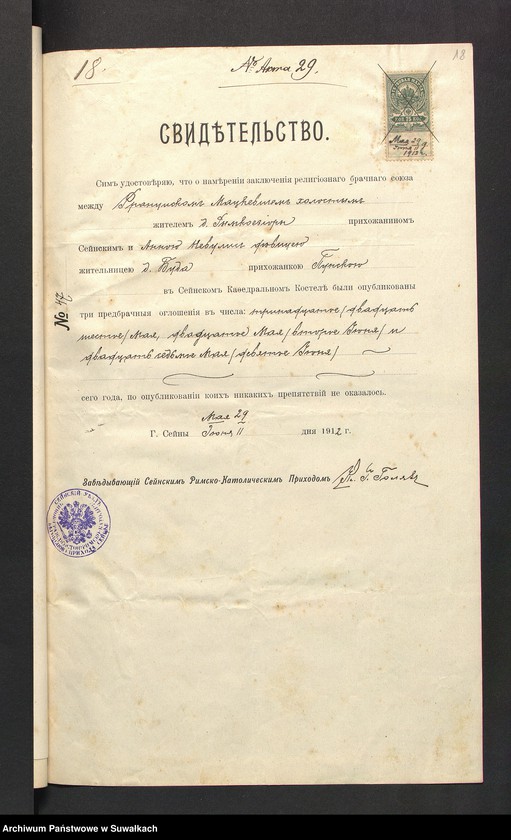 18.
№ Акта 29.
18
Мая 29
Июня 11
1912
СВИДѢТЕЛЬСТВО.
Симъ удостовѣряю, что о намѣреніи заключенія религіознаго брачнаго союза
между Францискомъ Мацкевичемъ холостымъ
жителемъ д. прихожаниномъ
Сейнскимъ и Анною Невулисъ дѣвицею
жительницею д. Буда прихожанкою Пунскою
въ Сейнскомъ Каѳедральномъ Костелѣ были опубликованы
три предбрачныя оглошенія въ числа: тринадцатое/двадцать
шестое/Мая, двадцатое Мая/второе Іюня/ и
двадцать седьмое Мая/девятое Іюня/
сего года, по опубликованіи коихъ никакихъ препятствій не оказалось.
Мая 29
Г. Сейны Іюня 11 дня 1912 г.
Завѣдывающій Сейнскимъ Римско-Католическимъ Приходомъ Кс.
№ 47
Archiwum Państwowe w Suwałkach